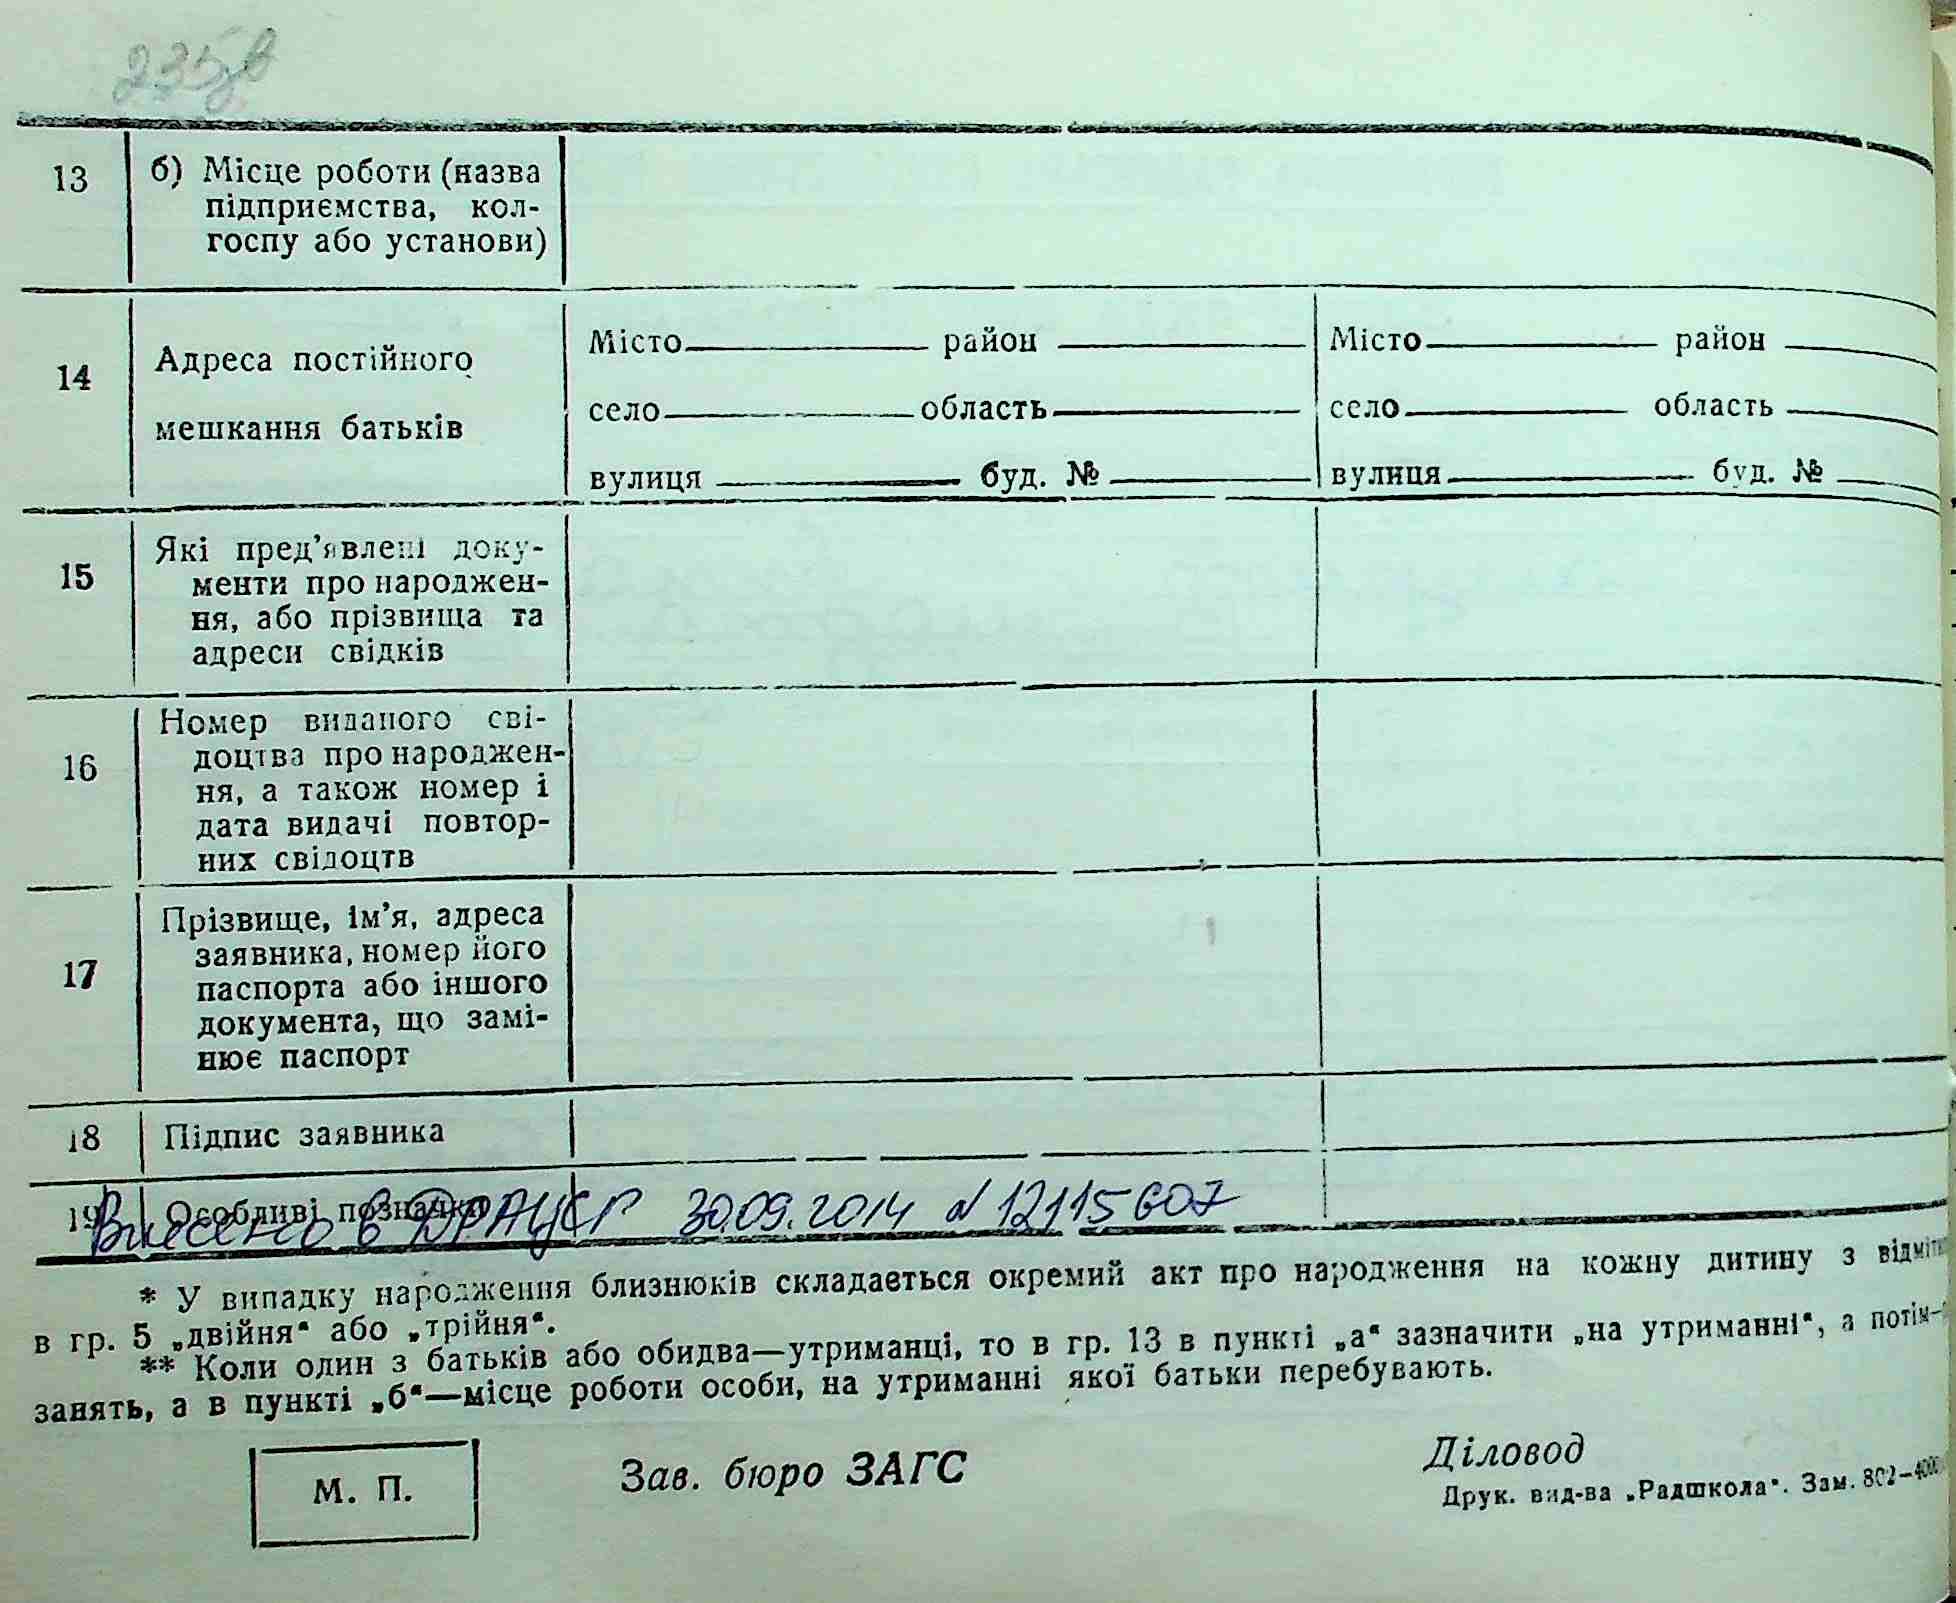 235зв
13
б) Місце роботи (назва
підприємства, кол-
госпу або установи)
14
Адреса постійного
мешкання батьків
Місто район
село область
вулиця буд. №
Місто район
село область
вулиця буд. №
15
Які пред’явлені доку-
менти про народжен-
ня, або прізвища та
адреси свідків
16
Номер виданого сві-
доцтва про народжен-
ня, а також номер і
дата видачі повтор-
них свідоцтв
17
Прізвище, ім’я, адреса
заявника, номер його
паспорта або іншого
документа, що замі-
нює паспорт
18
Підпис заявника
19
Особливі познадки
Внесено в ДРАЦСГ 30.09.2014 № 12115607
* У випадку народження близнюків складається окремий акт про народження на кожну дитину з
в гр. 5 „двійня“ або „трійня“.
** Коли один з батьків або обидва—утриманці, то в гр. 13 в пункті „а“ зазначити „на утриманні“, а потім—
занять, а в пункті „б“—місце роботи особи, на утриманні якої батьки перебувають.
М. П.
Зав. бюро ЗАГС
Діловод
Друк. вид-ва „Радшкола“. Зам. 802—4000